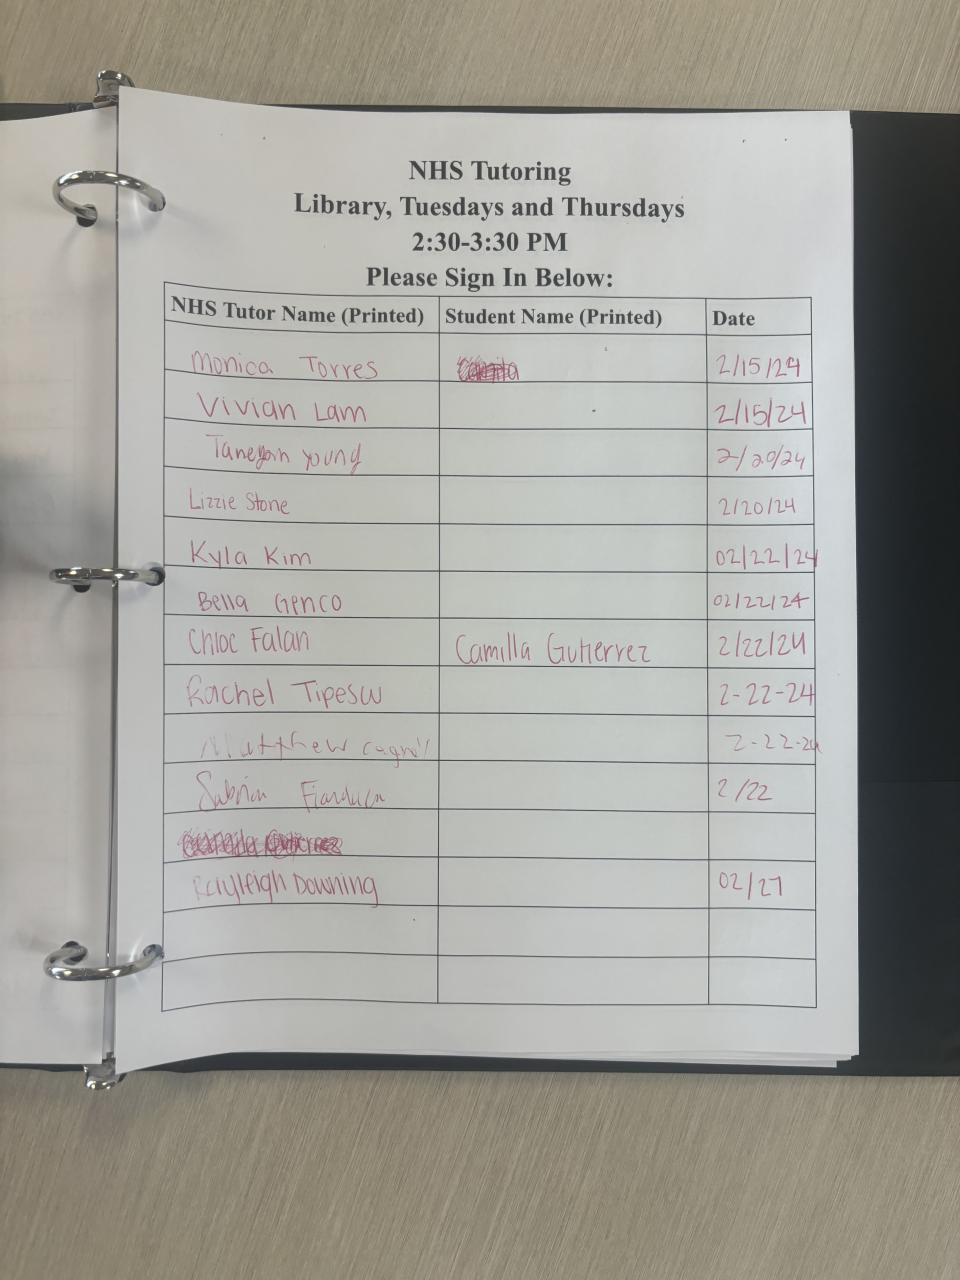 NHS Tutoring
Library, Tuesdays and Thursdays
2:30-3:30 PM
Please Sign In Below:
NHS Tutor Name (Printed) Student Name (Printed) Date
Monica Torres 2/15/24
Vivian Lam 2/15/24
Young 2/20/24
Lizzie Stone 2/20/24
Kyla Kim 02/22/24
Bella Genco 02/22/24
Chloe Falan Camilla Gutierrez 2/22/24
Rachel Tipescu 2-22-24
Matthew 2-22-24
Sabrina 2/22
Rayleigh Downing 02/27